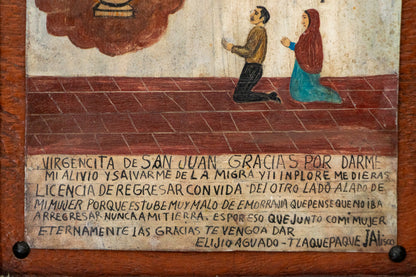 VIRGENCITA DE SAN JUAN GRACIAS POR DARME
MI ALIVIO Y SAIVARME DE LA MIGRA Y II INPLORE ME DIERAS
LICENCIA DE REGRESAR CON VIDA DEL OTRO LADO ALADO DE
MI MUJER PORQUE ESTUBE MUY MALO DE EMORRAJIA QUE PENSE QUE NO IBA
A RREGRESAR NUNCA A MI TIERRA. ES POR ESO QUE JUNTO COMI MUJER
ETERNAMENTE LAS GRACIAS TE VENGO A DAR
ELIJIO AGUADO - TZAQUEPAQUE JALisco